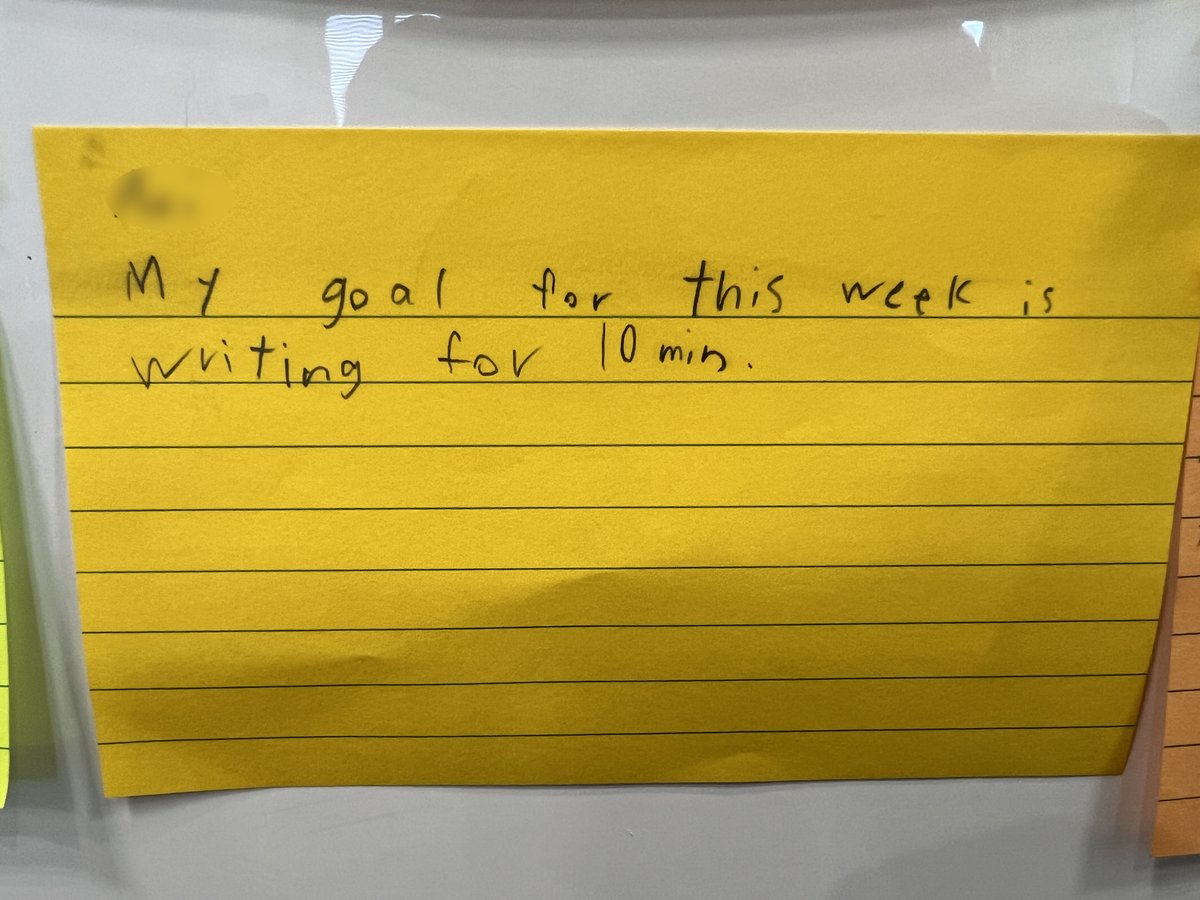 My goal for this week is
writing for 10 min.